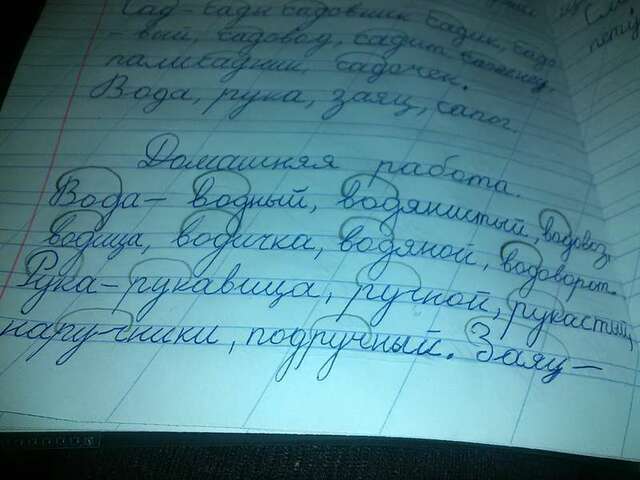 Сад - сады садовник садик, садо
- вый, садовод, садить саженец,
палисадник, садочек.
Вода, рука, заяц, сапог.
Домашняя работа.
Вода - водный, водянистый, водовоз,
водица, водичка, водяной, водоворот.
Рука - рукавица, ручной, рукастый,
наручники, подручный. Заяц -